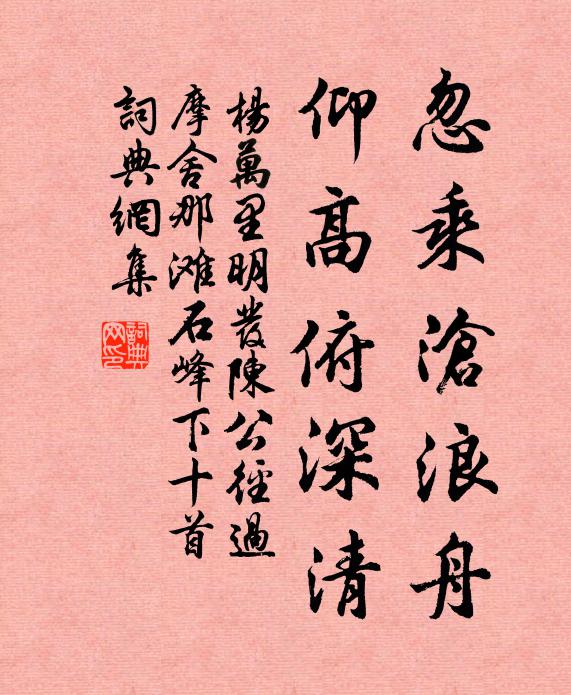 忽乘滄浪舟
仰高俯深清
楊萬里明發陳公徑過
摩舍那滩石峰下十首
詞典網集
詞典
网印